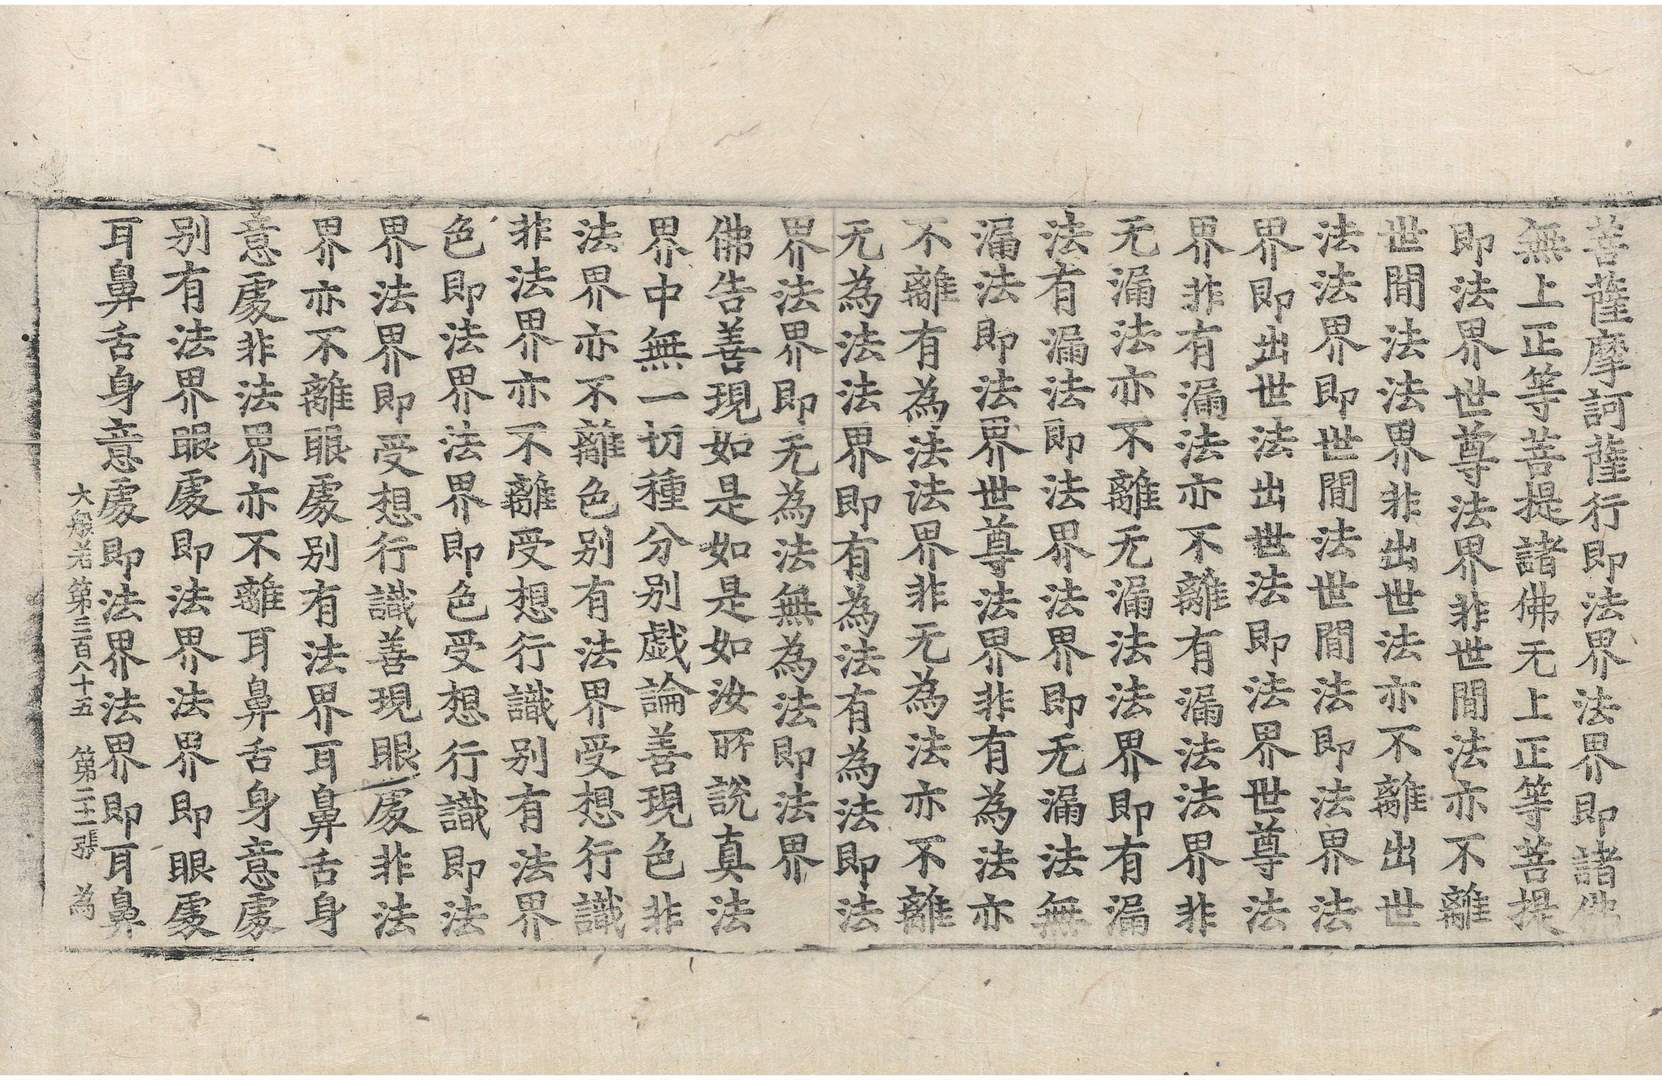 菩薩摩訶薩行即法界法界即諸佛
無上正等菩提諸佛无上正等菩提
即法界世尊法界非世閒法亦不離
世閒法法界非出世法亦不離出世
法法界即世閒法世閒法即法界法
界即出世法出世法即法界世尊法
界非有漏法亦不離有漏法法界非
无漏法亦不離无漏法法界即有漏
法有漏法即法界法界即无漏法無
漏法即法界世尊法界非有為法亦
不離有為法法界非无為法亦不離
无為法法界即有為法有為法即法
界法界即无為法無為法即法界
佛告善現如是如是如汝所說真法
界中無一切種分別戱論善現色非
法界亦不離色別有法界受想行識
非法界亦不離受想行識別有法界
色即法界法界即色受想行識即法
界法界即受想行識善現眼處非法
界亦不離眼處別有法界耳鼻舌身
意處非法界亦不離耳鼻舌身意處
別有法界眼處即法界法界即眼處
耳鼻舌身意處即法界法界即耳鼻
大般若第三百八十五 第二十一張 為